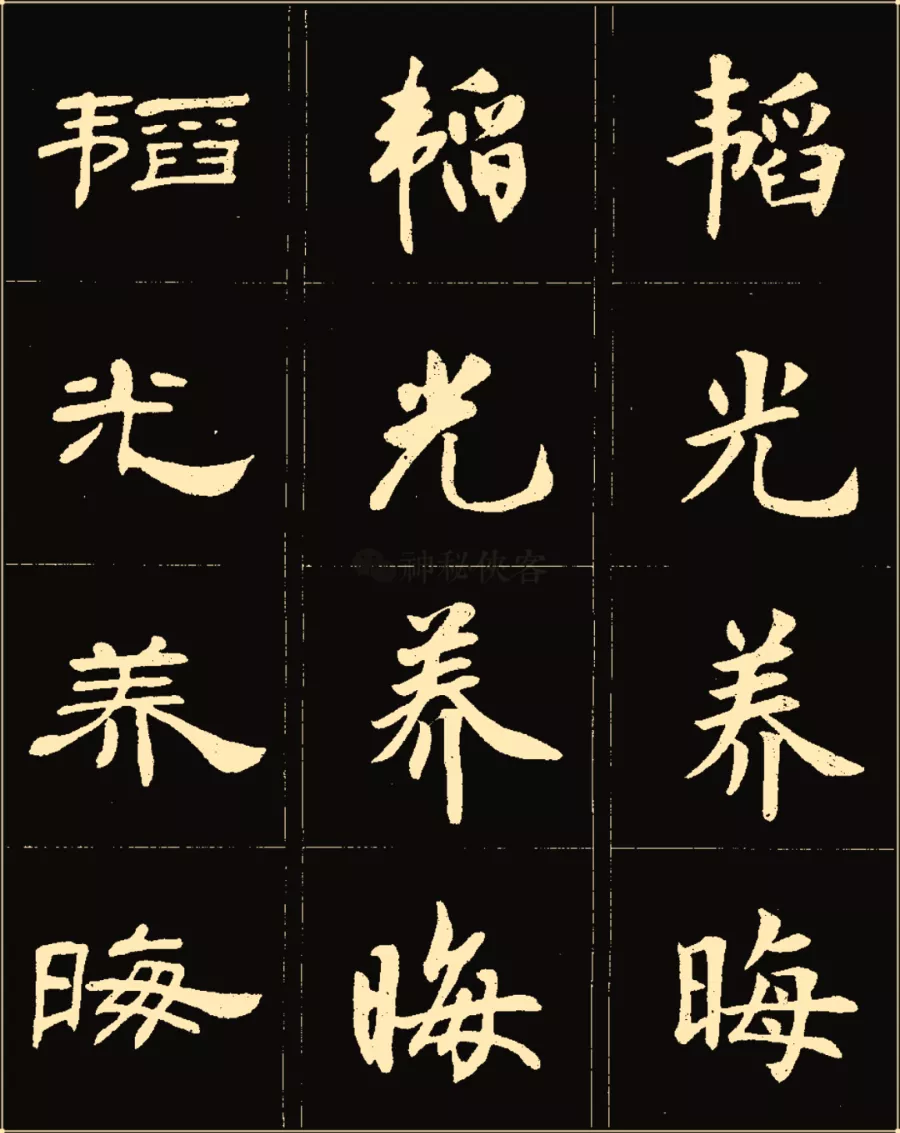 韬光养晦
韬光养晦
韬光养晦
神秘侠客